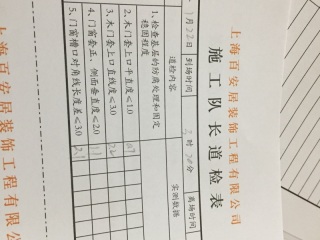 上海百安居装饰工程有限公司
施工队长巡检表
月22日 到场时间 时30分 离场时间
巡检内容 实测数据
1、检查基层的防腐处理和固定
稳固程度
2、木门套上口平直度≤1.0
3、木门套上口直线度≤3.0
4、门窗套正、侧面垂直度≤2.0
5、门窗槽口对角线长度差≤3.0
上海百安居装饰工程有限公